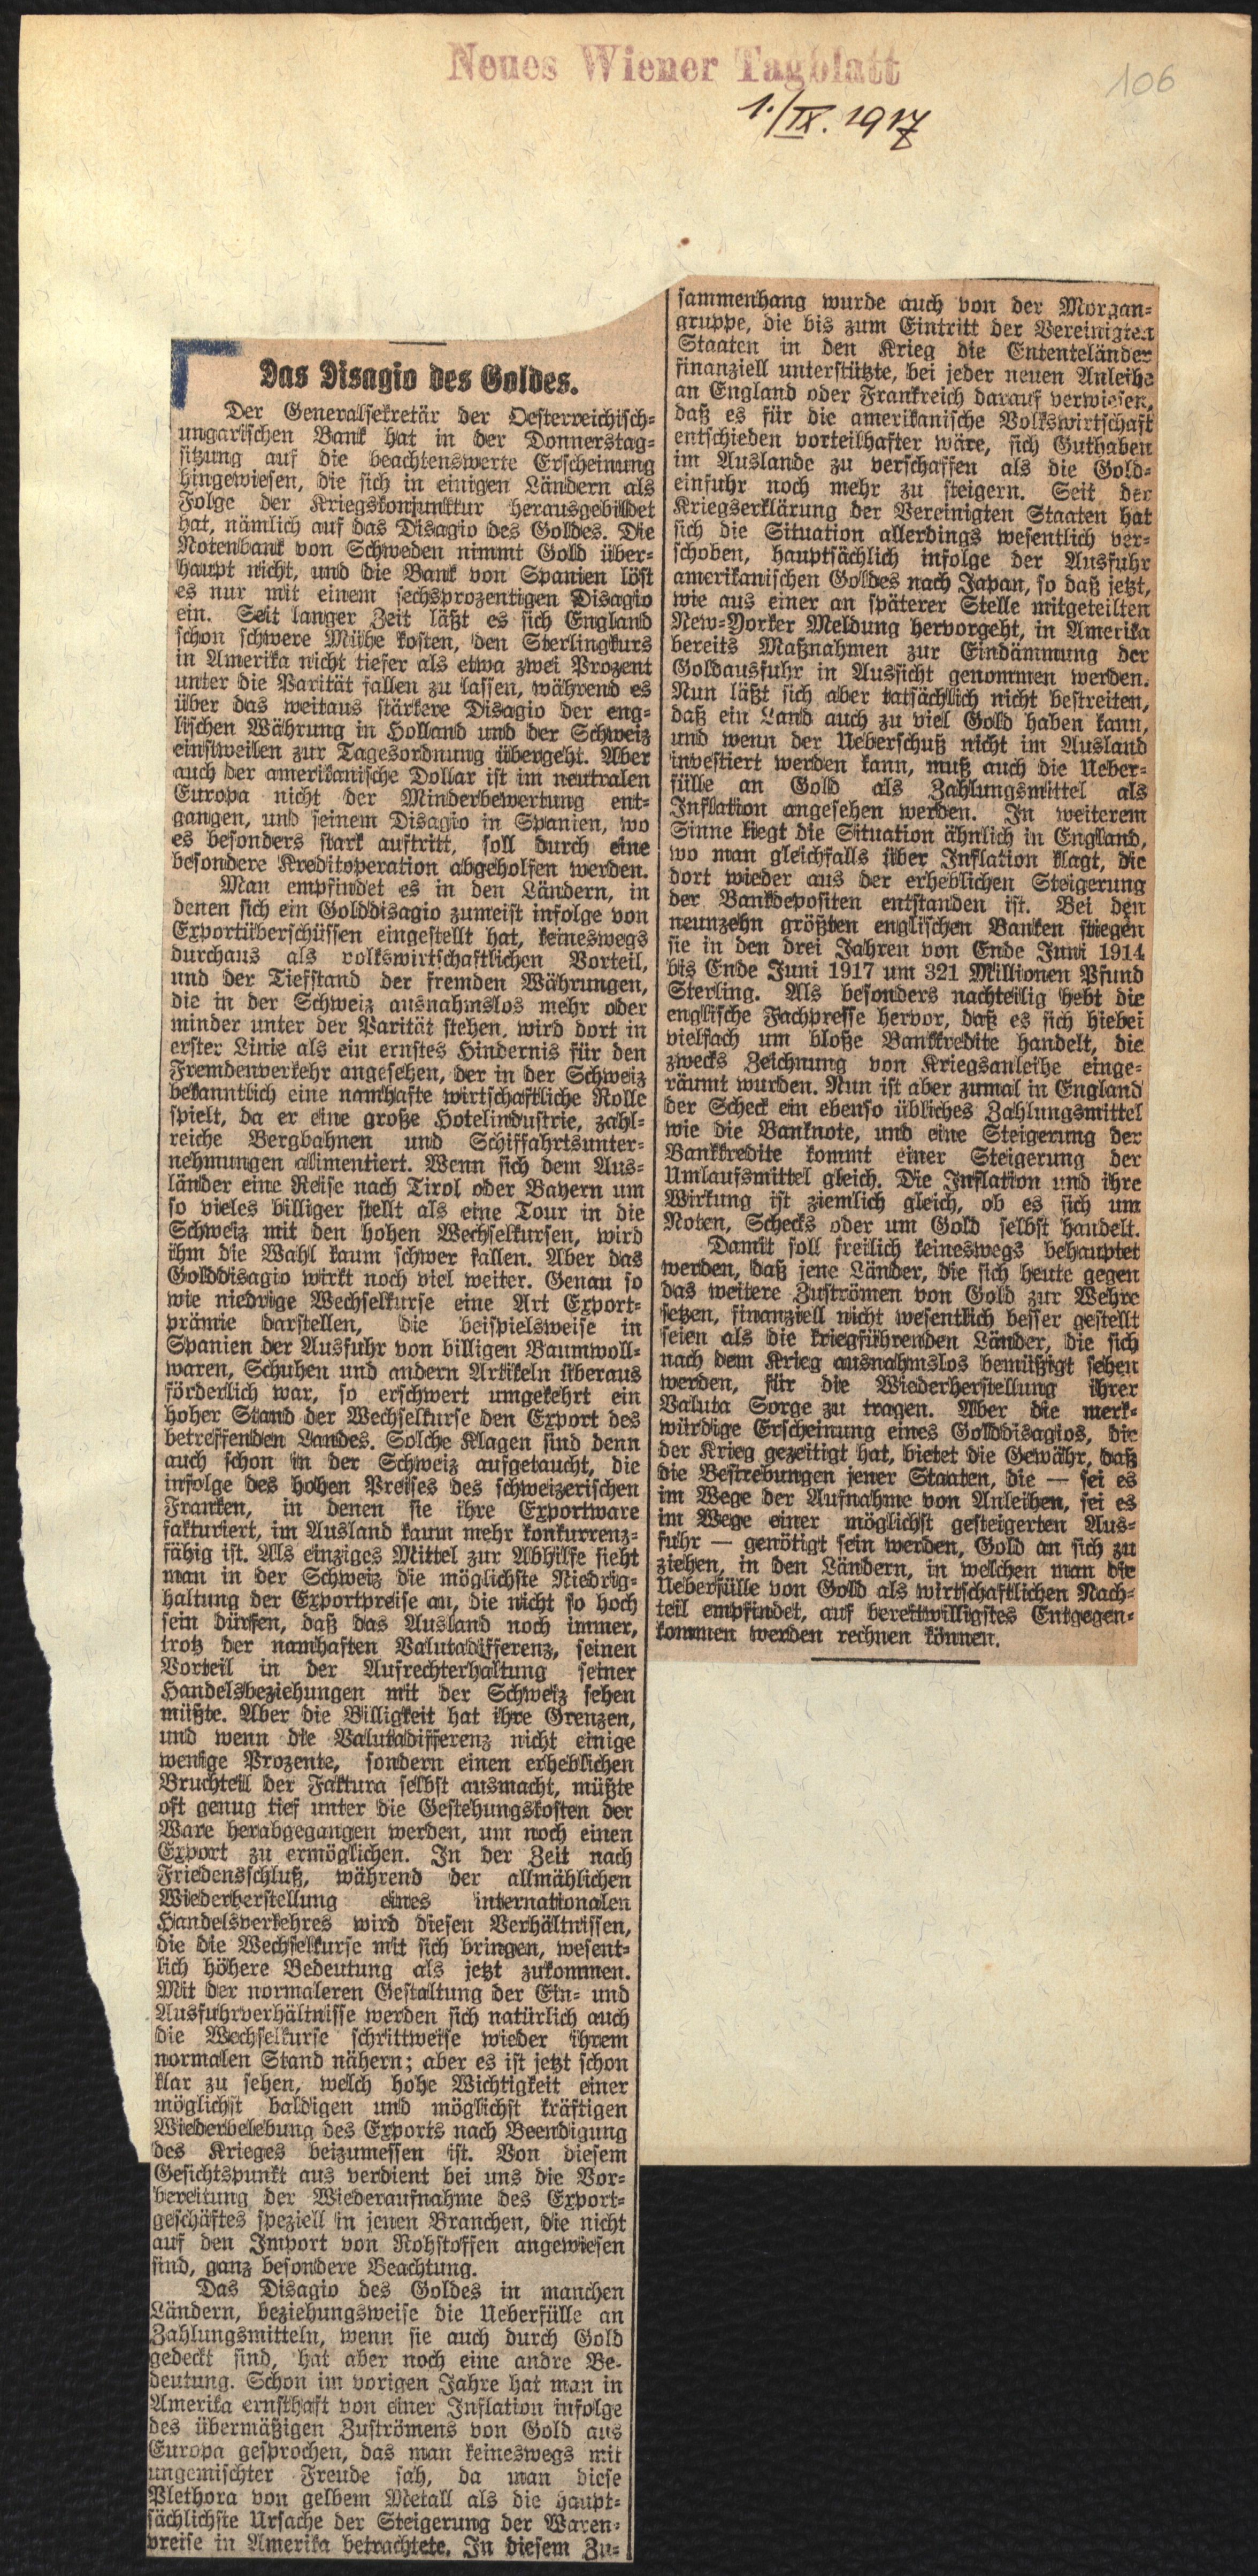 Neues Wiener Tagblatt
106
1./IX. 1917
Das Disagio des Goldes.
Der Generalsekretär der Oesterreichisch-
ungarischen Bank hat in der Donnerstag-
sitzung auf die beachtenswerte Erscheinung
hingewiesen, die sich in einigen Ländern als
Folge der Kriegskonjunktur herausgebildet
hat, nämlich auf das Disagio des Goldes. Die
Notenbank von Schweden nimmt Gold über-
haupt nicht, und die Bank von Spanien löst
es nur mit einem sechsprozentigen Disagio
ein. Seit langer Zeit läßt es sich England
schon schwere Mühe kosten, den Sterlingkurs
in Amerika nicht tiefer als etwa zwei Prozent
unter die Parität fallen zu lassen, während es
über das weitaus stärkere Disagio der eng-
lischen Währung in Holland und der Schweiz
einstweilen zur Tagesordnung übergeht. Aber
auch der amerikanische Dollar ist im neutralen
Europa nicht der Minderbewertung ent-
gangen, und seinem Disagio in Spanien, wo
es besonders stark auftritt, soll durch eine
besondere Kreditoperation abgeholfen werden.
Man empfindet es in den Ländern, in
denen sich ein Golddisagio zumeist infolge von
Exportüberschüssen eingestellt hat, keineswegs
durchaus als volkswirtschaftlichen Vorteil,
und der Tiefstand der fremden Währungen,
die in der Schweiz ausnahmslos mehr oder
minder unter der Parität stehen, wird dort in
erster Linie als ein ernstes Hindernis für den
Fremdenverkehr angesehen, der in der Schweiz
bekanntlich eine namhafte wirtschaftliche Rolle
spielt, da er eine große Hotelindustrie, zahl-
reiche Bergbahnen und Schiffahrtsunter-
nehmungen alimentiert. Wenn sich dem Aus-
länder eine Reise nach Tirol oder Bayern um
so vieles billiger stellt als eine Tour in die
Schweiz mit den hohen Wechselkursen, wird
ihm die Wahl kaum schwer fallen. Aber das
Golddisagio wirkt noch viel weiter. Genau so
wie niedrige Wechselkurse eine Art Export-
prämie darstellen, die beispielsweise in
Spanien der Ausfuhr von billigen Baumwoll-
waren, Schuhen und andern Artikeln überaus
förderlich war, so erschwert umgekehrt ein
hoher Stand der Wechselkurse den Export des
betreffenden Landes. Solche Klagen sind denn
auch schon in der Schweiz aufgetaucht, die
infolge des hohen Preises des schweizerischen
Franken, in denen sie ihre Exportware
fakturiert, im Ausland kaum mehr konkurrenz-
fähig ist. Als einziges Mittel zur Abhilfe sieht
man in der Schweiz die möglichste Niedrig-
haltung der Exportpreise an, die nicht so hoch
sein dürfen, daß das Ausland noch immer,
trotz der namhaften Valutadifferenz, seinen
Vorteil in der Aufrechterhaltung seiner
Handelsbeziehungen mit der Schweiz sehen
müßte. Aber die Billigkeit hat ihre Grenzen,
und wenn die Valutadifferenz nicht einige
wenige Prozente, sondern einen erheblichen
Bruchteil der Faktura selbst ausmacht, müßte
oft genug tief unter die Gestehungskosten der
Ware herabgegangen werden, um noch einen
Export zu ermöglichen. In der Zeit nach
Friedensschluß, während der allmählichen
Wiederherstellung eines internationalen
Handelsverkehres wird diesen Verhältnissen,
die die Wechselkurse mit sich bringen, wesent-
lich höhere Bedeutung als jetzt zukommen.
Mit der normaleren Gestaltung der Ein- und
Ausfuhrverhältnisse werden sich natürlich auch
die Wechselkurse schrittweise wieder ihrem
normalen Stand nähern; aber es ist jetzt schon
klar zu sehen, welch hohe Wichtigkeit einer
möglichst baldigen und möglichst kräftigen
Wiederbelebung des Exports nach Beendigung
des Krieges beizumessen ist. Von diesem
Gesichtspunkt aus verdient bei uns die Vor-
bereitung der Wiederaufnahme des Export-
geschäftes speziell in jenen Branchen, die nicht
auf den Import von Rohstoffen angewiesen
sind, ganz besondere Beachtung.
Das Disagio des Goldes in manchen
Ländern, beziehungsweise die Ueberfülle an
Zahlungsmitteln, wenn sie auch durch Gold
gedeckt sind, hat aber noch eine andre Be-
deutung. Schon im vorigen Jahre hat man in
Amerika ernsthaft von einer Inflation infolge
des übermäßigen Zuströmens von Gold aus
Europa gesprochen, das man keineswegs mit
ungemischter Freude sah, da man diese
Plethora von gelbem Metall als die haupt-
sächlichste Ursache der Steigerung der Waren-
preise in Amerika betrachtete. In diesem Zu-
sammenhang wurde auch von der Morgan-
gruppe, die bis zum Eintritt der Vereinigten
Staaten in den Krieg die Ententeländer
finanziell unterstützte, bei jeder neuen Anleihe
an England oder Frankreich darauf verwiesen,
daß es für die amerikanische Volkswirtschaft
entschieden vorteilhafter wäre, sich Guthaben
im Auslande zu verschaffen als die Gold-
einfuhr noch mehr zu steigern. Seit der
Kriegserklärung der Vereinigten Staaten hat
sich die Situation allerdings wesentlich ver-
schoben, hauptsächlich infolge der Ausfuhr
amerikanischen Goldes nach Japan, so daß jetzt,
wie aus einer an späterer Stelle mitgeteilten
New-Yorker Meldung hervorgeht, in Amerika
bereits Maßnahmen zur Eindämmung der
Goldausfuhr in Aussicht genommen werden.
Nun läßt sich aber tatsächlich nicht bestreiten,
daß ein Land auch zu viel Gold haben kann,
und wenn der Ueberschuß nicht im Ausland
investiert werden kann, muß auch die Ueber-
fülle an Gold als Zahlungsmittel als
Inflation angesehen werden. In weiterem
Sinne liegt die Situation ähnlich in England,
wo man gleichfalls über Inflation klagt, die
dort wieder aus der erheblichen Steigerung
der Bankdepositen entstanden ist. Bei den
neunzehn größten englischen Banken stiegen
sie in den drei Jahren von Ende Juni 1914
bis Ende Juni 1917 um 321 Millionen Pfund
Sterling. Als besonders nachteilig hebt die
englische Fachpresse hervor, daß es sich hiebei
vielfach um bloße Bankkredite handelt, die
zwecks Zeichnung von Kriegsanleihe einge-
räumt wurden. Nun ist aber zumal in England
der Scheck ein ebenso übliches Zahlungsmittel
wie die Banknote, und eine Steigerung der
Bankkredite kommt einer Steigerung der
Umlaufsmittel gleich. Die Inflation und ihre
Wirkung ist ziemlich gleich, ob es sich um
Noten, Schecks oder um Gold selbst handelt.
Damit soll freilich keineswegs behauptet
werden, daß jene Länder, die sich heute gegen
das weitere Zuströmen von Gold zur Wehre
setzen, finanziell nicht wesentlich besser gestellt
seien als die kriegführenden Länder, die sich
nach dem Krieg ausnahmslos bemüßigt sehen
werden, für die Wiederherstellung ihrer
Valuta Sorge zu tragen. Aber die merk-
würdige Erscheinung eines Golddisagios, die
der Krieg gezeitigt hat, bietet die Gewähr, daß
die Bestrebungen jener Staaten, die — sei es
im Wege der Aufnahme von Anleihen, sei es
im Wege einer möglichst gesteigerten Aus-
fuhr — genötigt sein werden, Gold an sich zu
ziehen, in den Ländern, in welchen man die
Ueberfülle von Gold als wirtschaftlichen Nach-
teil empfindet, auf bereitwilligstes Entgegen-
kommen werden rechnen können.